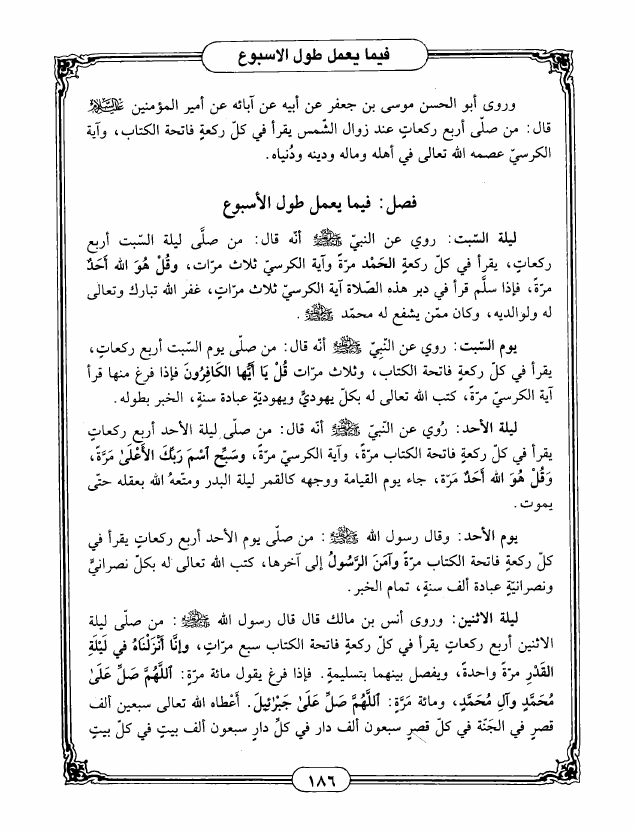 فيما يعمل طول الاسبوع
وروى أبو الحسن موسى بن جعفر عن أبيه عن آبائه عن أمير المؤمنين عَلَيْهِ السَّلَام
قال: من صلّى أربع ركعاتٍ عند زوال الشّمس يقرأ في كلّ ركعةٍ فاتحة الكتاب، وآية
الكرسيّ عصمه الله تعالى في أهله وماله ودينه ودُنياه.
فصل: فيما يعمل طول الأسبوع
ليلة السّبت: روي عن النبيّ ﷺ أنّه قال: من صلَّى ليلة السّبت أربع
ركعاتٍ، يقرأ في كلّ ركعةٍ الحَمْد مرّةً وآية الكرسيّ ثلاث مرّات، وقُلْ هُوَ الله أَحَدٌ
مرّةً، فإذا سلّم قرأ في دبر هذه الصّلاة آية الكرسيّ ثلاث مرّاتٍ، غفر الله تبارك وتعالى
له ولوالديه، وكان ممّن يشفع له محمّد ﷺ.
يوم السّبت: روي عن النّبيّ ﷺ أنّه قال: من صلّى يوم السّبت أربع ركعاتٍ،
يقرأ في كلّ ركعةٍ فاتحة الكتاب، وثلاث مرّات قُلْ يَا أَيُّها الكَافِرُونَ فإذا فرغ منها قرأ
آية الكرسيّ مرّةً، كتب الله تعالى له بكلّ يهوديٍّ ويهوديّةٍ عبادة سنةٍ، الخبر بطوله.
ليلة الأحد: رُوي عن النّبيّ ﷺ أنّه قال: من صلّى ليلة الأحد أربع ركعاتٍ
يقرأ في كلّ ركعةٍ فاتحة الكتاب مرّةً، وآية الكرسيّ مرّةً، وسَبِّح اسْمَ رَبِّكَ الأَعْلَىٰ مَرَّةً،
وَقُلْ هُوَ الله أَحَدٌ مَرّة، جاء يوم القيامة ووجهه كالقمر ليلة البدر ومتّعهُ الله بعقله حتّى
يموت.
يوم الأحد: وقال رسول الله ﷺ: من صلّى يوم الأحد أربع ركعاتٍ يقرأ في
كلّ ركعةٍ فاتحة الكتاب مرّةً وآمَنَ الرَّسُولُ إلى آخرها، كتب الله تعالى له بكلّ نصرانيٍّ
ونصرانيّةٍ عبادة ألف سنةٍ، تمام الخبر.
ليلة الاثنين: وروى أنس بن مالك قال قال رسول الله ﷺ: من صلّى ليلة
الاثنين أربع ركعاتٍ يقرأ في كلّ ركعةٍ فاتحة الكتاب سبع مرّاتٍ، وإنَّا أَنْزَلْنَاهُ في لَيْلَةِ
القَدْرِ مرّةً واحدةً، ويفصل بينهما بتسليمةٍ. فإذا فرغ يقول مائة مرّةٍ: اَللَّهُمَّ صَلِّ عَلَىٰ
مُحَمَّدٍ وآلِ مُحَمَّدٍ، ومائة مَرَّةٍ: اَللَّهُمَّ صَلِّ عَلَىٰ جَبْرَئِيلَ. أَعْطاه الله تعالى سبعين ألف
قصرٍ في الجَنّة في كلّ قصرٍ سبعون ألف دار في كلِّ دارٍ سبعون ألف بيتٍ في كلّ بيتٍ
١٨٦